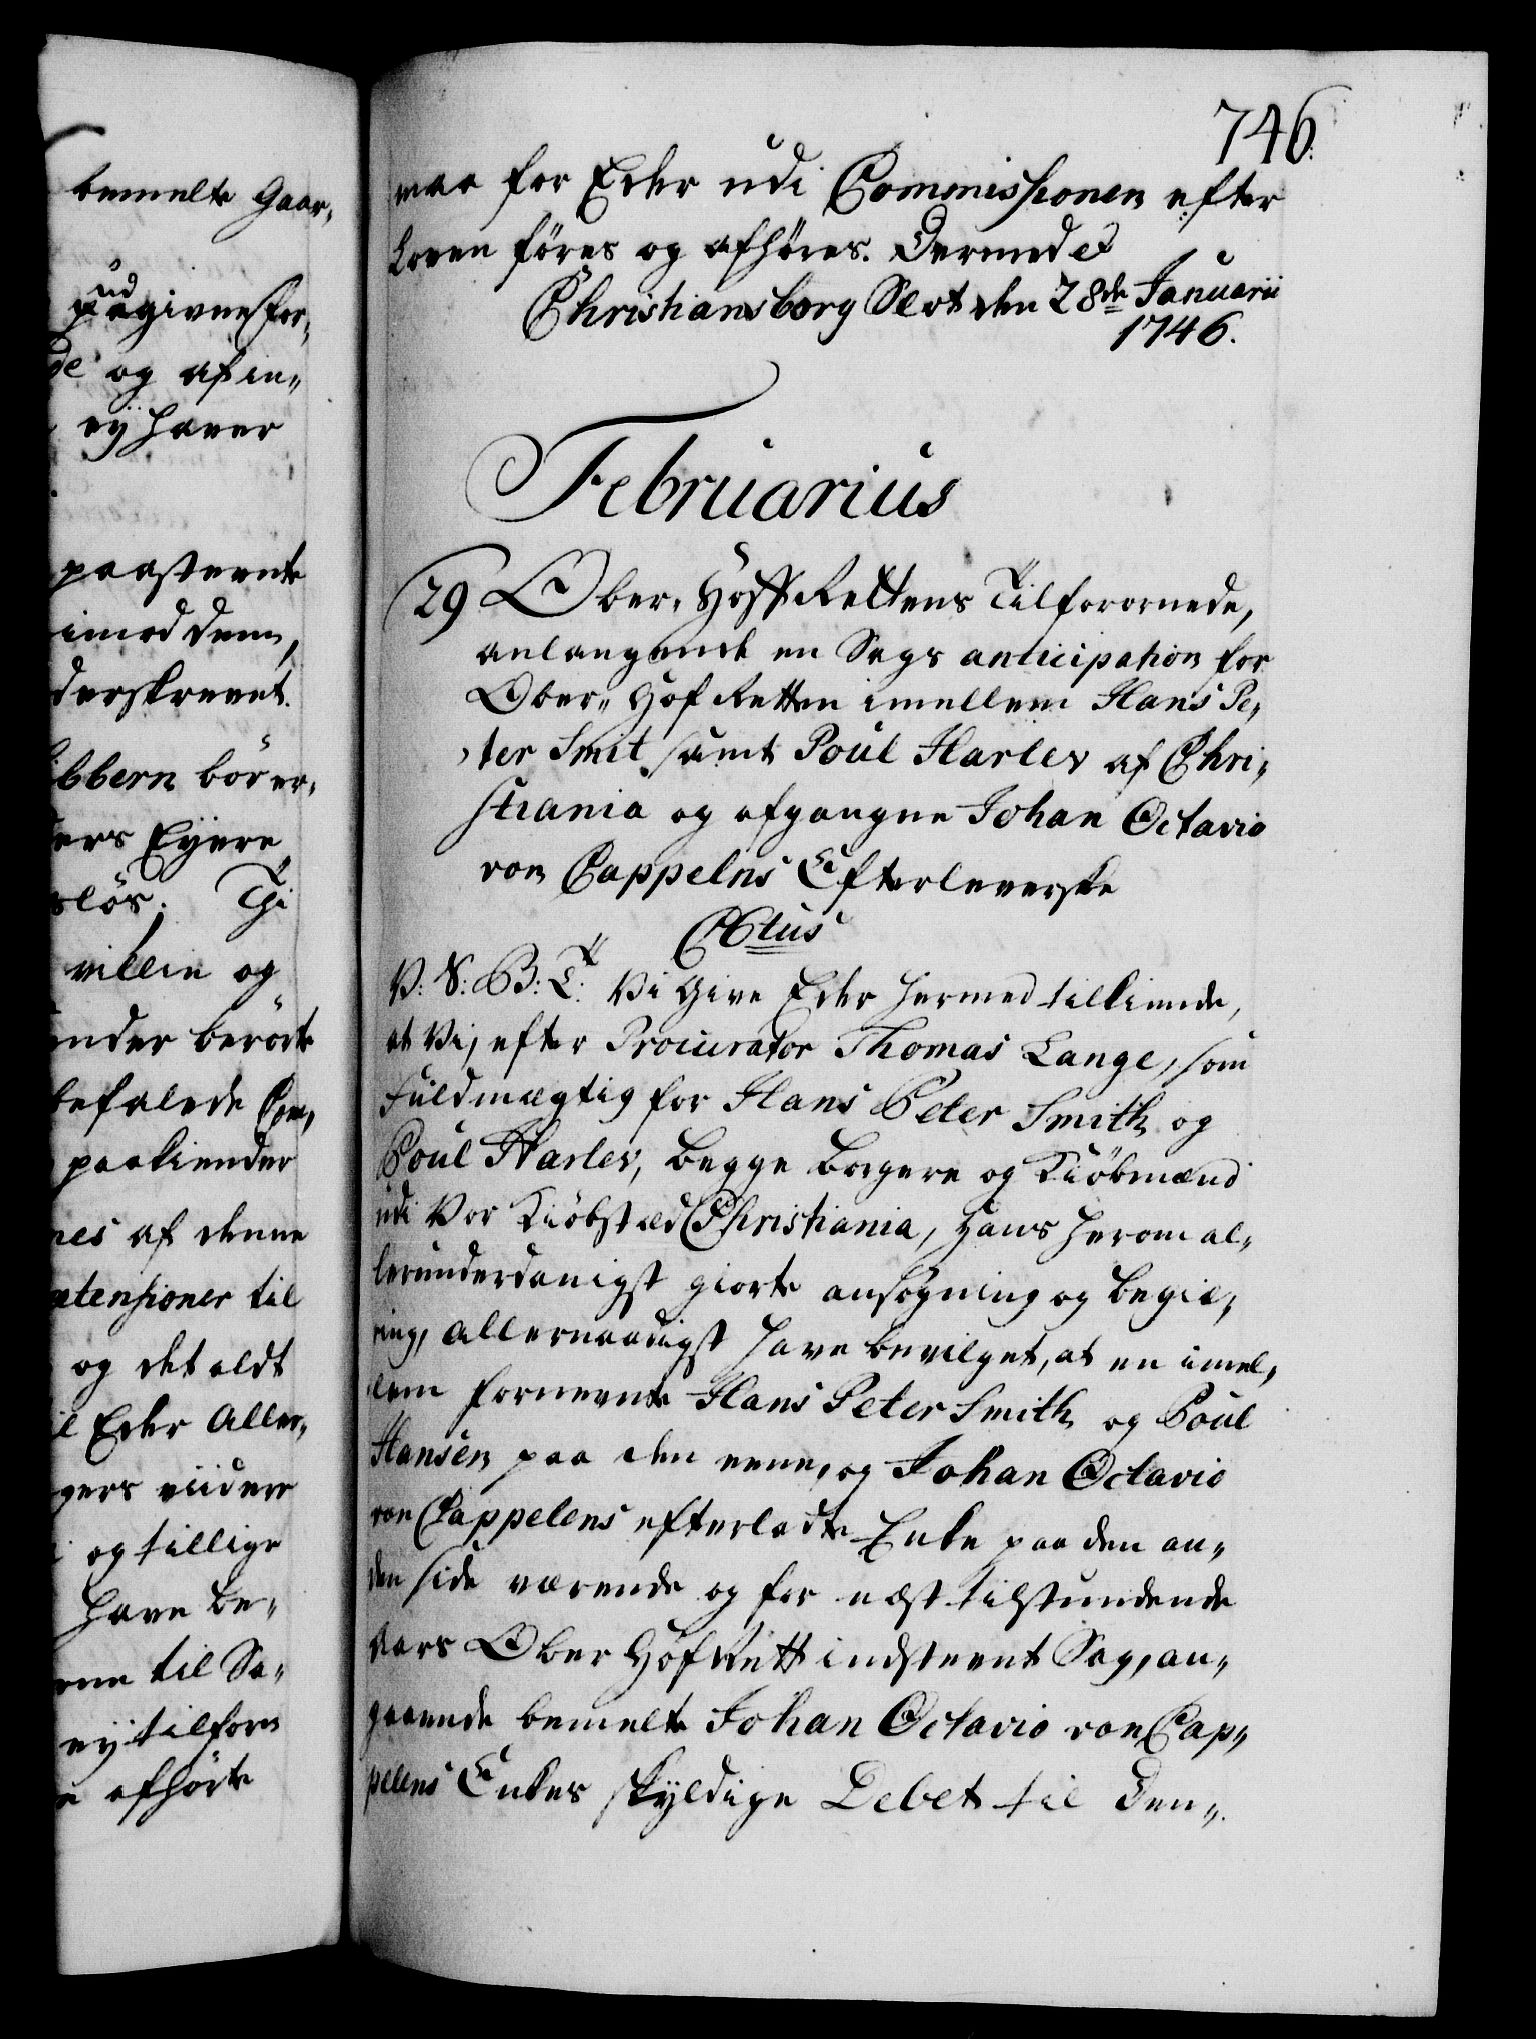 bemelte Gaar,
ud
givne for,
og af in,,
eÿ haver
paastevnte
imod dem,
derskrevet.
ibbern bör er,
ters Eÿere
slös; Thi
villie og
under berörte
befalede Com,
paakiender
nes af denne
ætensioner til
og det aldt
il Eder Aller,
gers viidere
og tillige
have be,
til Sa,,
eÿ tilforn
afhörte
746.
maa for Eder udi Commissionen efter
Loven föres og afhöres. Dermed etc
Christiansborg Slot den 28de Januarii
1746.
Februarius
29 Ober, Hoff Rettens Tilforornede,
anlangende en Sags anticipation for
Ober,, Hof Retten imellem Hans Pe,
ter Smit samt Poul Harlev af Chri,
stiania og afgangne Johan Octavio
von Cappelns Efterleverske
Cætus
V: S: B: T: Vi Give Eder hermed tilkiende,
at Vi, efter Procurator Thomas Lange, som
Fuldmægtig for Hans Peter Smith og
Poul Harlev, begge borgere og Kiöbmænd
udi Vor Kiöbstæd Christiania, hans herom al,
lerunderdanigst giorte ansögning og begie,
ring, Allernaadigst have bevilget, at en imel,
lem fornevnte Hans Peter Smith og Poul
Hansen paa den eene, og Johan Octavio
von Cappelens efterladte Enke paa den an,
den side værende og for næst tilstundende
Aars Ober Hof Rett indstevnt Sag, an,
gaaende bemelte Johan Octavio von Cap,,
pelens Enkes skÿldige Debet til den,,